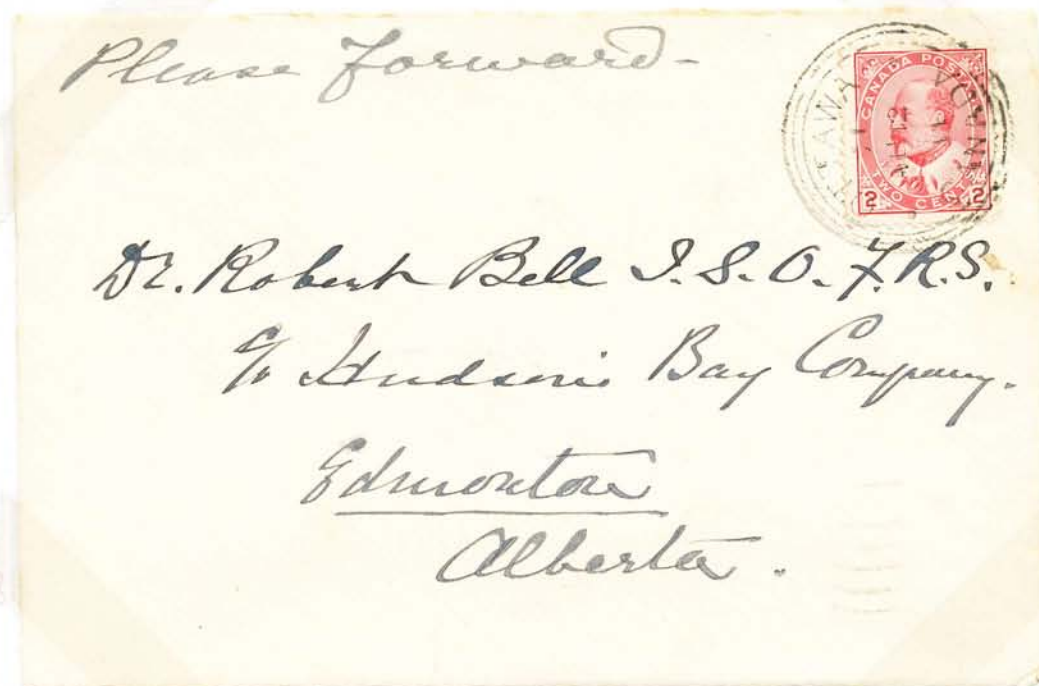 Please forward-
CANADA POSTAGE
OTTAWA CANADA
2 TWO CENTS 2
Dr. Robert Bell I.S.O. F.R.S.
c/o Hudson's Bay Company.
Edmonton
Alberta.